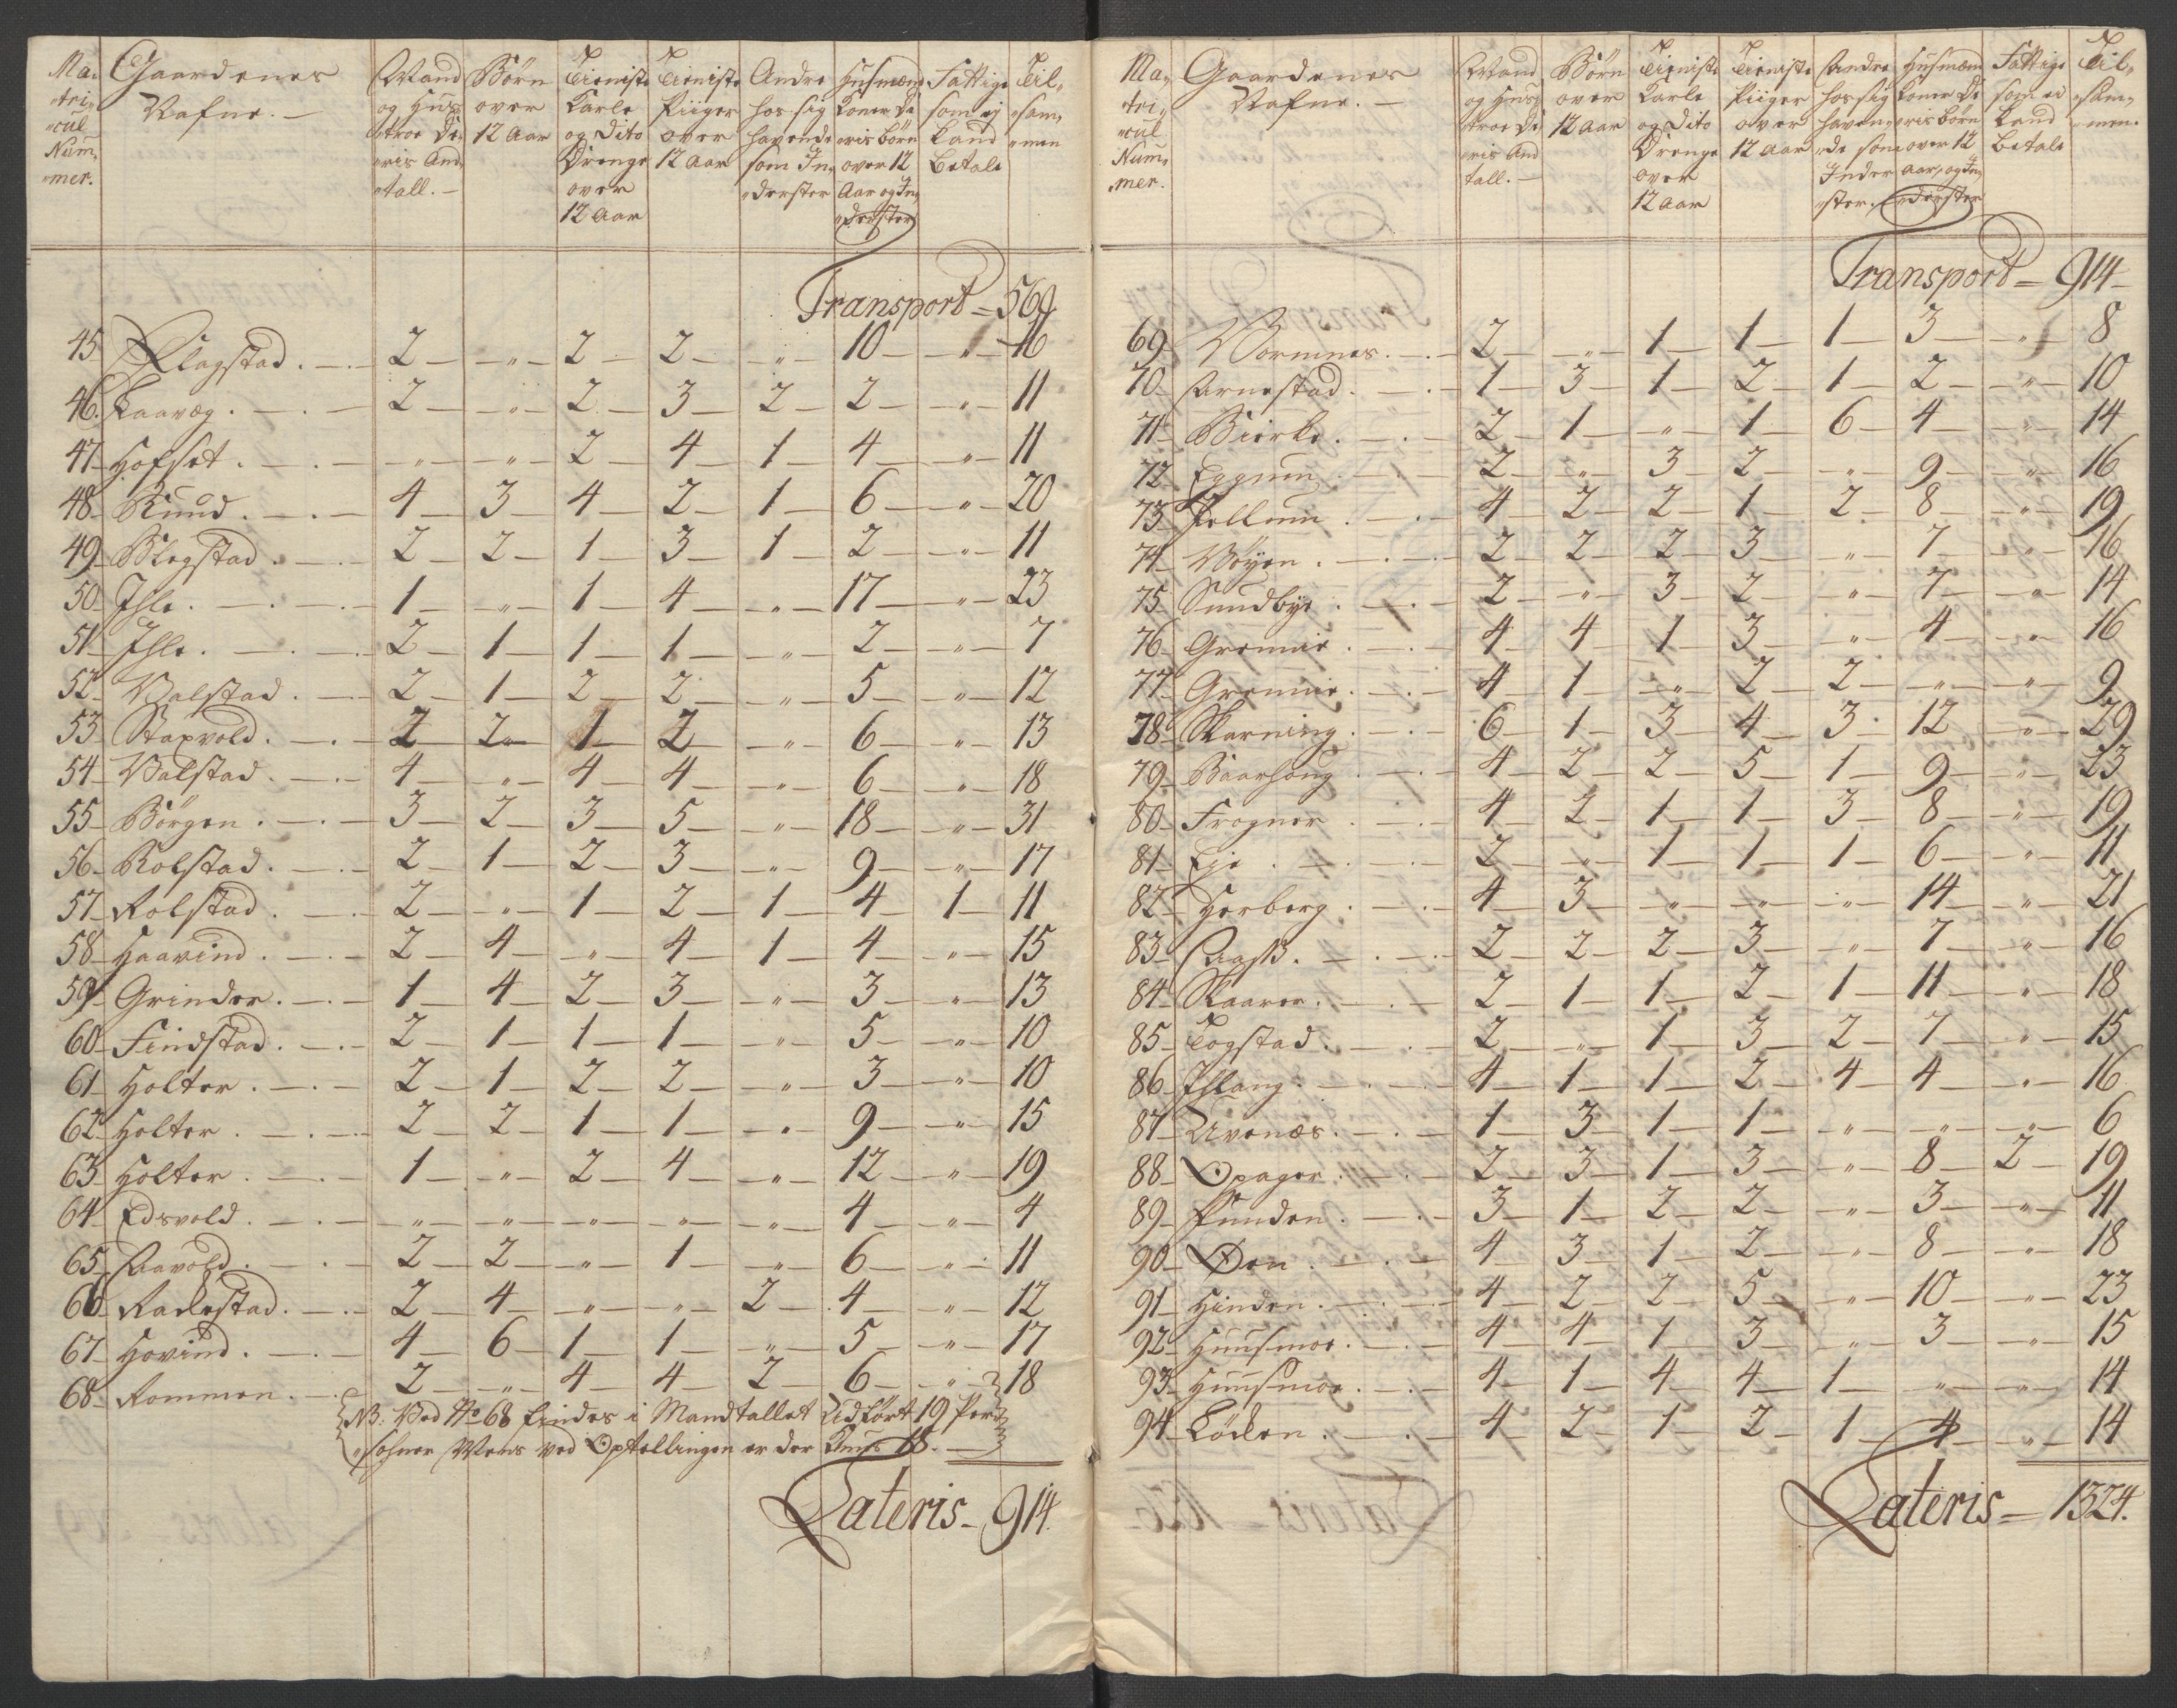 Ma, Gaardenes Mand Børn Tieniste Tieniste Andre Husmæns Fattige Til,
"tri, Nafne. — og Hus, over Karle Piiger hos sig Koner De som ej "sam,
"cul "troe De, 12 Aar og Dito over havende "ris børn Kand "men
Num, "ris And, Drenge 12 Aar som In, over 12 Betale
"mer. "tall. — over "derster Aar og In,
12 Aar "derster
Transport = 569
45 Flagstad . — 2 — " — 2 — 2 — " — 10 — " — 16
46. Kaarvog . — 2 — " — 2 — 3 — 2 — 2 — " — 11
47 — Hofset . — " — " — 2 — 4 — 1 — 4 — " — 11
48 — Ruud . — 4 — 3 — 4 — 2 — 1 — 6 — " — 20
49 — Blegstad . — 2 — 2 — 1 — 3 — 1 — 2 — " — 11
50 — Ihle . — 1 — " — 1 — 4 — " — 17 — " — 23
51 — Ihle . — 2 — 1 — 1 — 1 — " — 2 — " — 7
52 — Valstad . — 2 — 1 — 2 — 2 — " — 5 — " — 12
53 — Staxvold . — 2 — 2 — 1 — 2 — " — 6 — " — 13
54 — Valstad . — 4 — " — 4 — 4 — " — 6 — " — 18
55 — Børgen . — 3 — 2 — 3 — 5 — " — 18 — " — 31
56 — Rolstad . — 2 — 1 — 2 — 3 — " — 9 — " — 17
57 — Rolstad . — 2 — " — 1 — 2 — 1 — 4 — 1 — 11
58 — Haavind . — 2 — 4 — " — 4 — 1 — 4 — " — 15
59 — Grinder . — 1 — 4 — 2 — 3 — " — 3 — " — 13
60 — Findstad . — 2 — 1 — 1 — 1 — " — 5 — " — 10
61 — Holter . — 2 — 1 — 2 — 2 — " — 3 — " — 10
62 — Holter . — 2 — 2 — 1 — 1 — " — 9 — " — 15
63 — Holter . — 1 — " — 2 — 4 — " — 12 — " — 19
64 — Edsvold . — " — " — " — " — " — 4 — " — 4
65 — Aavold . — 2 — 2 — " — 1 — " — 6 — " — 11
66 — Radestad . — 2 — 4 — " — " — 2 — 4 — " — 12
67 — Hovind . — 4 — 6 — 1 — 1 — " — 5 — " — 17
68 — Rommen . — 2 — " — 4 — 4 — 2 — 6 — " — 18
NB: Ved No 68 findes i Mandtallet Udført 19 Per,
"sohner Mens ved Optellingen er der Kuns 18. —
Lateris — 914.
Ma, Gaardenes Mand Børn Tieniste Tieniste Andre Husmæn Fattige Til,
"tri, Nafne. — og Hus, over Karle Piiger hos sig Koner De som ei "sam,
"cul "troe De 12 Aar og Dito over haven, "ris børn Kand "men.
Num, "ris And Drenge 12 Aar "de som over 12 Betale
"mer. tall. — over Inder Aar, og In,
12 Aar "ster. "derster
Transport — 914 —
69 — Wormnes . — 2 — " — 1 — 1 — 1 — 3 — " — 8
70 — Arnestad . — 1 — 3 — 1 — 2 — 1 — 2 — " — 10
71 — Bierke . — 2 — 1 — " — 1 — 6 — 4 — " — 14
72 — Eggum . — 2 — " — 3 — 2 — " — 9 — " — 16
73 — Jellum . — 4 — 2 — 2 — 1 — 2 — 8 — " — 19
74 — Vøyen . — 2 — 2 — 2 — 3 — " — 7 — " — 16
75 — Sundbye . — 2 — " — 3 — 2 — " — 7 — " — 14
76 — Grønnie . — 4 — 4 — 1 — 3 — " — 4 — " — 16
77 — Grønnie . — 4 — 1 — " — 2 — 2 — " — " — 9
78 — Skarning . — 6 — 1 — 3 — 4 — 3 — 12 — " — 29
79 — Baarhoug . — 4 — 2 — 2 — 5 — 1 — 9 — " — 23
80 — Frogner . — 4 — 2 — 1 — 1 — 3 — 8 — " — 19
81 — Eje . — 2 — " — 1 — 1 — 1 — 6 — " — 11
82 — Herberg . — 4 — 3 — " — " — " — 14 — " — 21
83 — Aass . — 2 — 2 — 2 — 3 — " — 7 — " — 16
84 — Skaarer . — 2 — 1 — 1 — 2 — 1 — 11 — " — 18
85 — Togstad . — 2 — " — 1 — 3 — 2 — 7 — " — 15
86 — Ihlang . — 4 — 1 — 1 — 2 — 4 — 4 — " — 16
87 — Uvenæs . — 1 — 3 — 1 — 1 — " — " — " — 6
88 — Opager . — 2 — 3 — 1 — 3 — " — 8 — 2 — 19
89 — Funden . — 3 — 1 — 2 — 2 — " — 3 — " — 11
90 — Øen . — 4 — 3 — 1 — 2 — " — 8 — " — 18
91 — Hinden . — 4 — 2 — 2 — 5 — " — 10 — " — 23
92 — Huusmoe . — 4 — 4 — 1 — 3 — " — 3 — " — 15
93 — Huusmoe . — 4 — 1 — 4 — 4 — 1 — " — " — 14
94 — Løken . — 4 — 2 — 1 — 2 — 1 — 4 — " — 14
Lateris — 1324.